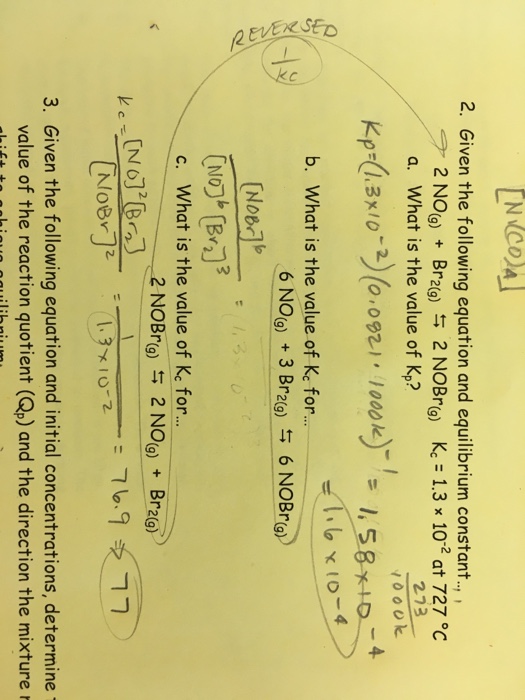 [Ni(CO)4]
2. Given the following equation and equilibrium constant...,
2 NO(g) + Br2(g) ⇆ 2 NOBr(g) Kc = 1.3 × 10-2 at 727 °C
273
1000K
a. What is the value of Kp?
Kp=(1.3x10-2)(0.0821·1000K)-1 = 1.58x10-4
= 1.6 x 10-4
b. What is the value of Kc for...
6 NO(g) + 3 Br2(g) ⇆ 6 NOBr(g)
[NOBr]6
[NO]6 [Br2]3
= (1.3
REVERSED
1
Kc
c. What is the value of Kc for...
2 NOBr(g) ⇆ 2 NO(g) + Br2(g)
Kc = [NO]2[Br2] = 1 = 76.9 ⇒ 77
[NOBr]2 1.3x10-2
3. Given the following equation and initial concentrations, determine
value of the reaction quotient (Qp) and the direction the mixture